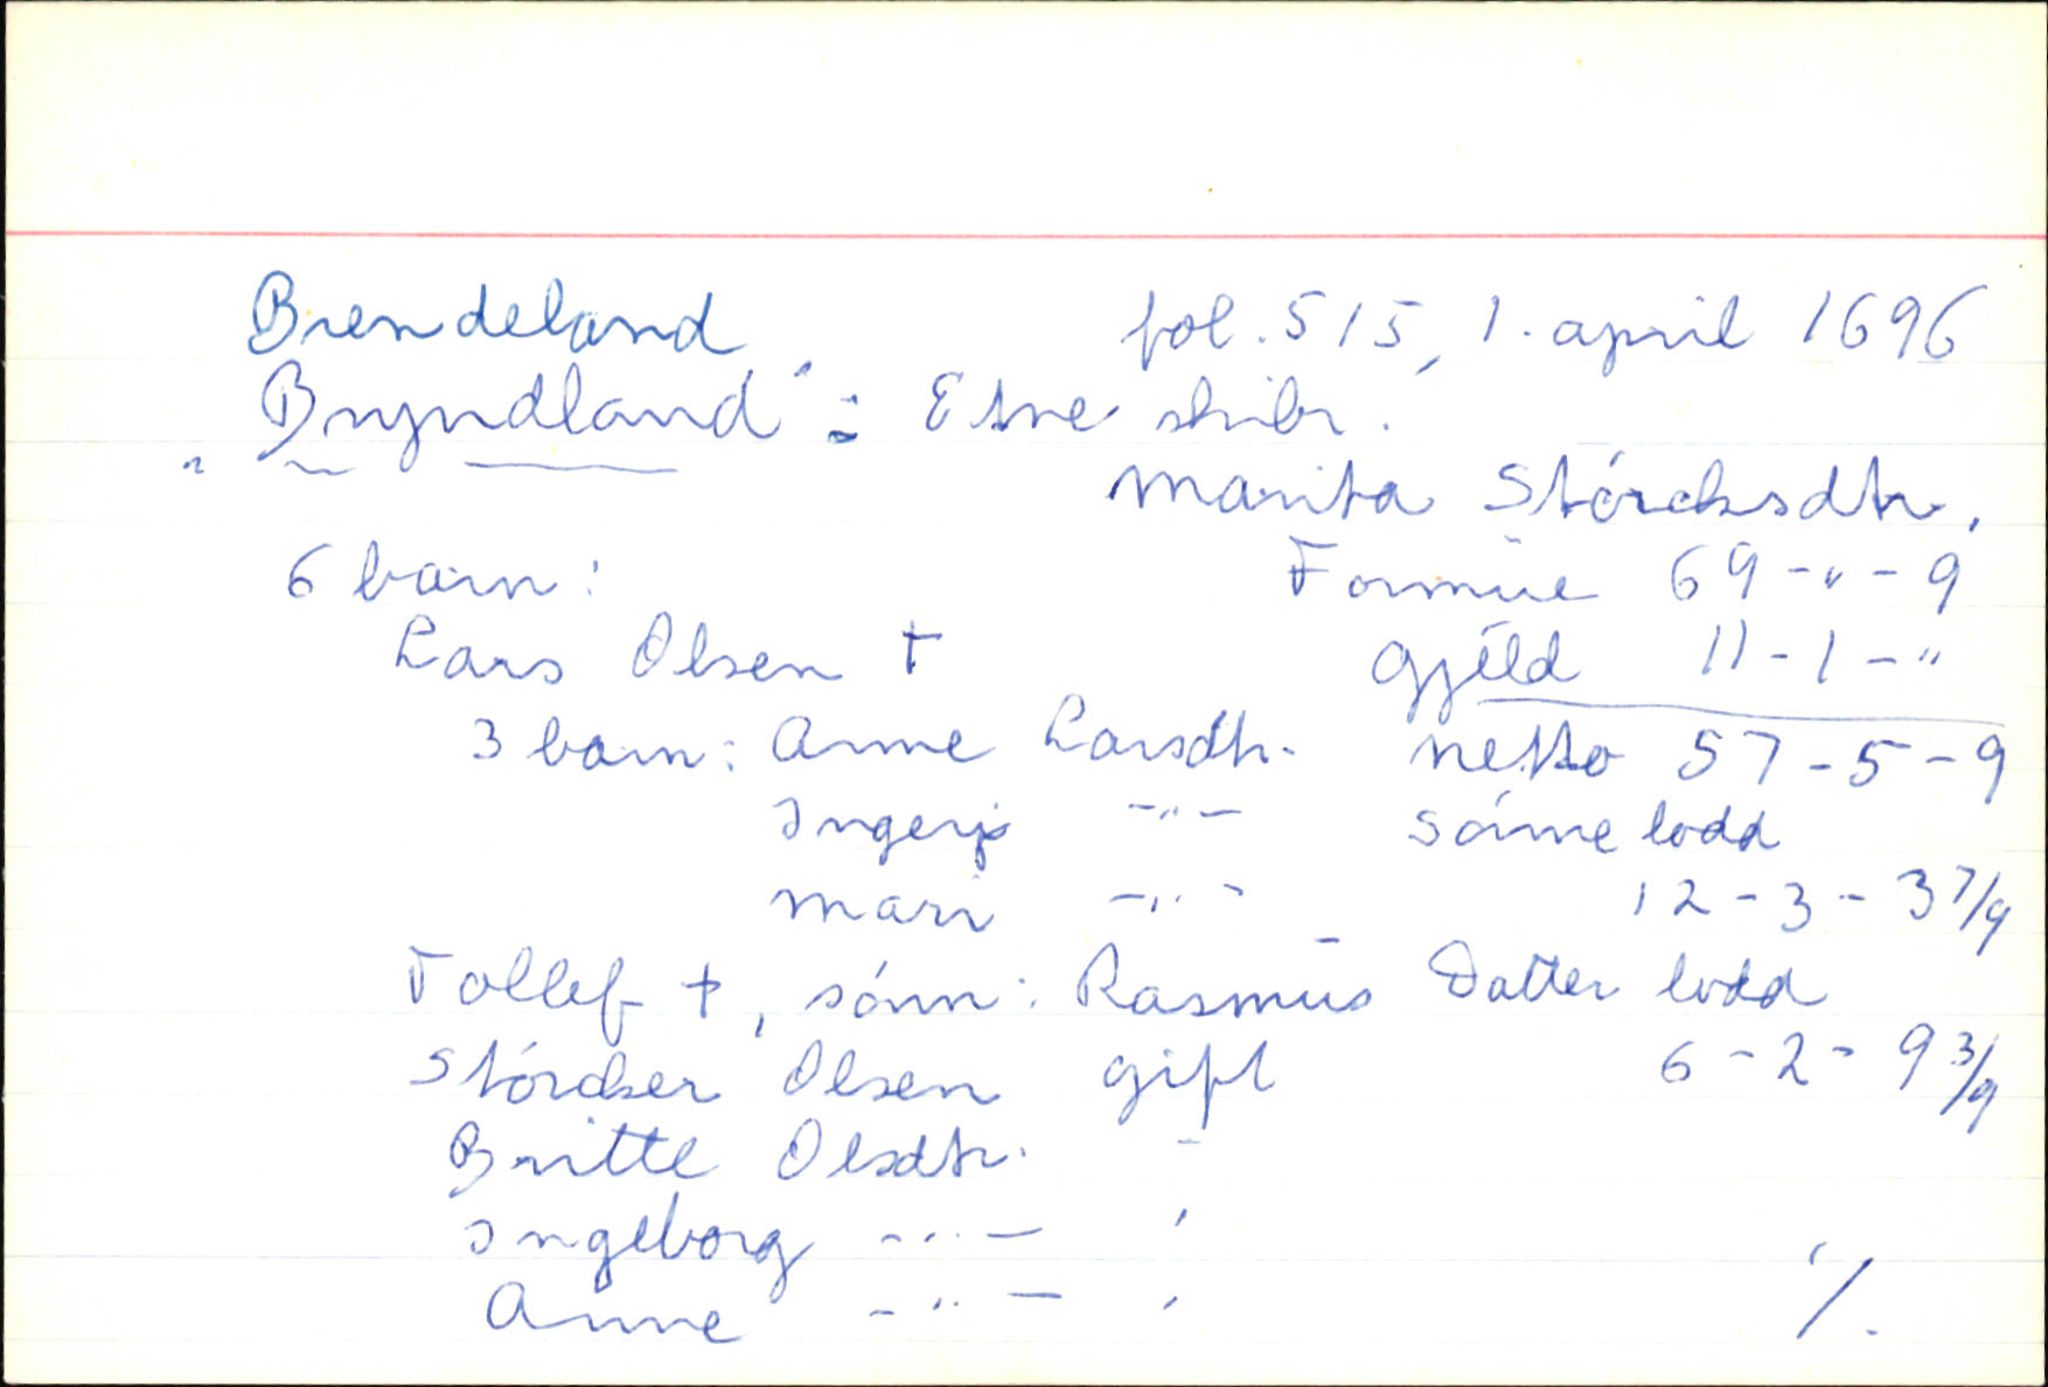 Brendeland fol. 515, 1. april 1696
"Bryndland" = Etne skibr.
Marita Störcksdtr.
6 barn: Formue 69 - " - 9
Lars Olsen † Gjeld 11 - 1 - "
3 barn: Anne Larsdtr. netto 57 - 5 - 9
Ingerj - " - Sönne lodd
Mari - " - 12 - 3 - 3 7/9
Tollef †, sönn: Rasmus Datter lodd
Störcker Olsen gift 6 - 2 - 9 3/9
Britte Olsdtr. -
Ingeborg - " - '
Anne - " - ' ·/.